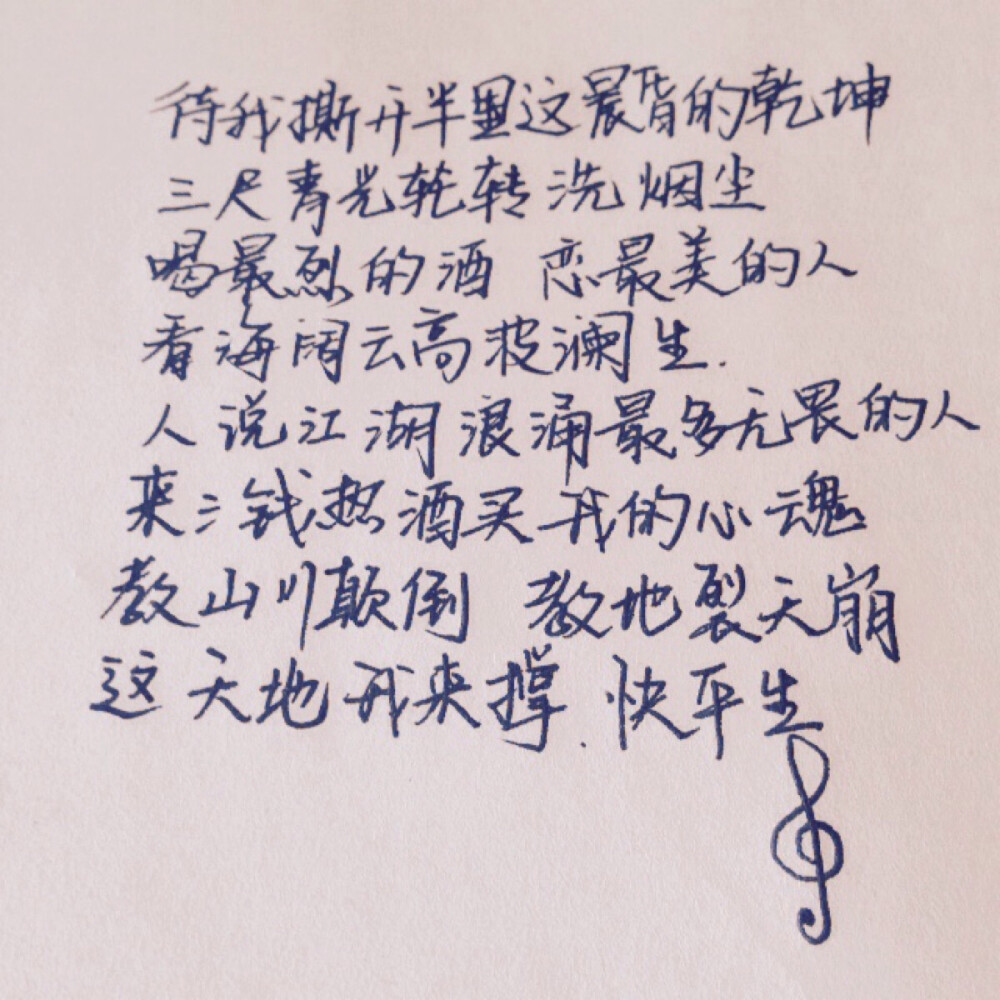 待我撕开半里这晨昏的乾坤
三尺青光轮转洗烟尘
喝最烈的酒 恋最美的人
看海阔云高波澜生.
人说江湖浪涌最多无畏的人
来三钱热酒买我的心魂
教山川颠倒 教地裂天崩
这天地我来撑.快平生